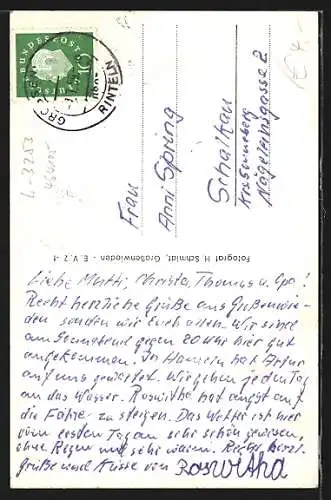 DEUTSCHE
BUNDESPOST
10
RINTELN
Frau
Anni Spring
Schalkau
Kr. Sonneberg
Nägeleinsgasse 2
Fotograf H. Schmidt, Großenwieden - E. V. Z. -f
L-3253
Liebe Mutti, Christa, Thomas u. Opa!
Recht herzliche Grüße aus Großenwie-
den senden wir Euch allen. Wir sind
am Sonnabend gegen 20 Uhr hier gut
angekommen. In Hameln hat Artur
auf uns gewartet. Wir gehen jeden Tag
an das Wasser. Roswitha hat Angst auf
die Fähre zu steigen. Das Wetter ist hier
vom ersten Tag an sehr schön gewesen,
ohne Regen und sehr warm. Recht herzl.
Grüße und Küsse von Roswitha